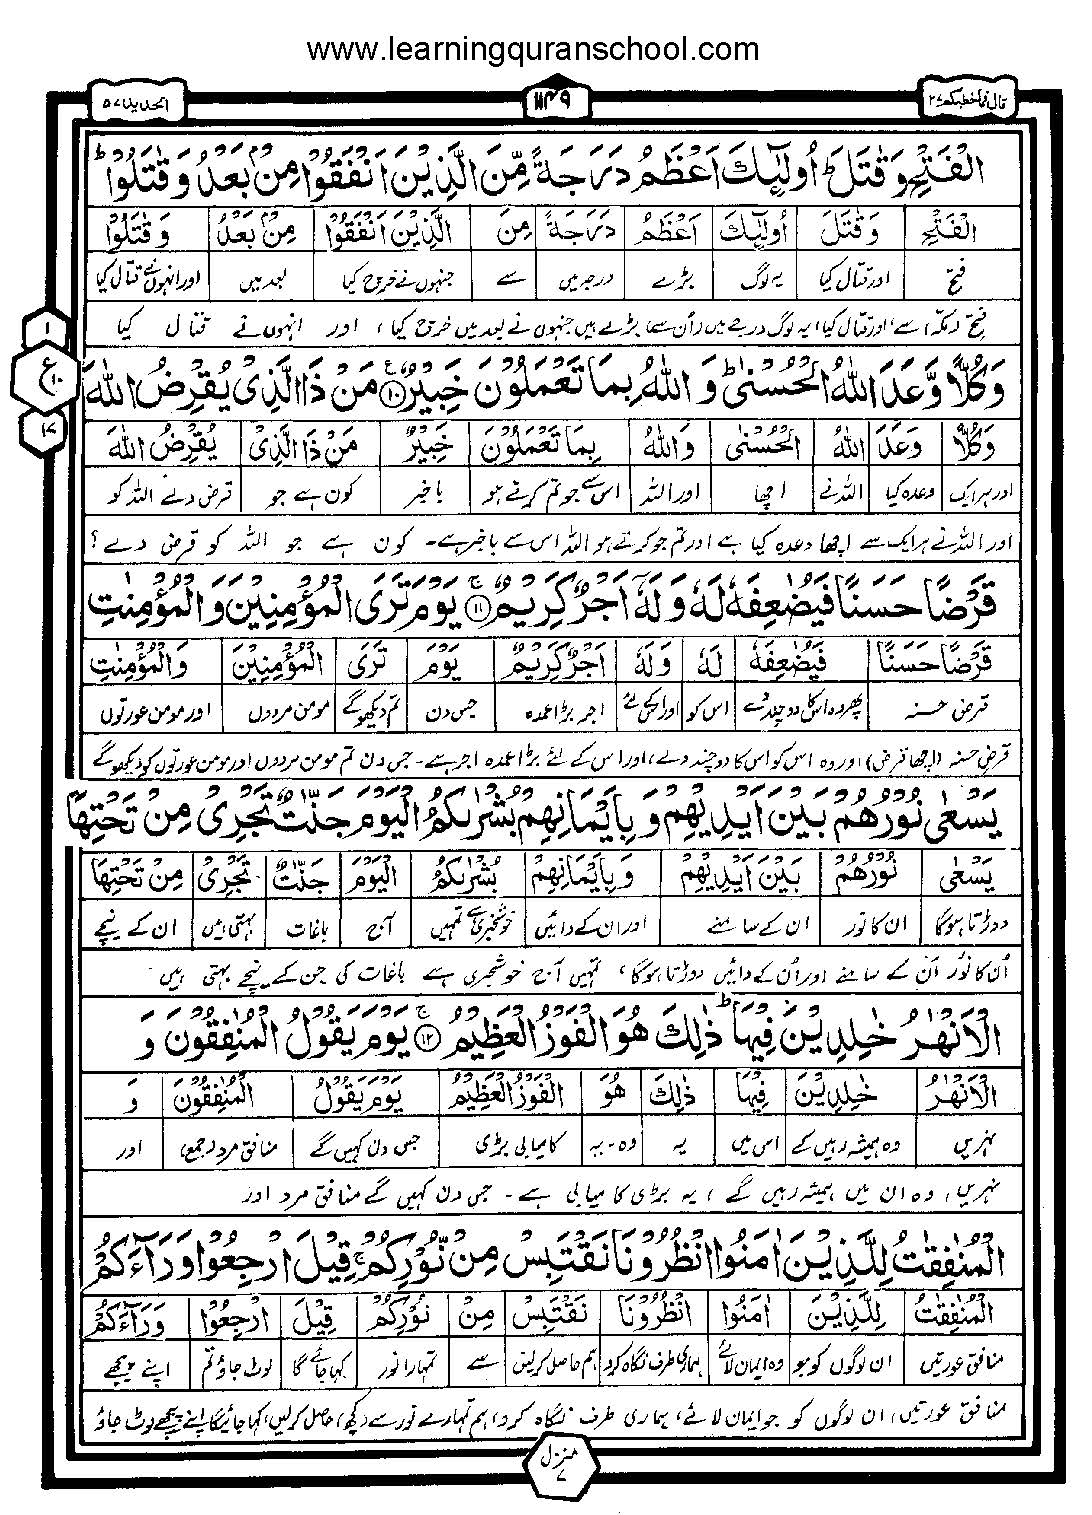 www.learningquranschool.com
قال فما خطبکم ۲۷
۱۱۴۹
الحدید ۵۷
الْفَتْحِ وَقٰتَلَ ؕ اُولٰٓئِكَ اَعْظَمُ دَرَجَةً مِّنَ الَّذِيْنَ اَنْفَقُوْا مِنْۢ بَعْدُ وَقٰتَلُوْا ؕ
الْفَتْحِ وَقٰتَلَ اُولٰٓئِكَ اَعْظَمُ دَرَجَةً مِنَ الَّذِيْنَ اَنْفَقُوْا مِنْۢ بَعْدُ وَقٰتَلُوْا
فتح اور قتال کیا یہ لوگ بڑے درجہ میں سے جنہوں نے خرچ کیا بعد میں اور انہوں نے قتال کیا
فتح (مکہ) سے، اور قتال کیا، یہ لوگ درجے میں (ان سے) بڑے ہیں جنہوں نے بعد میں خرچ کیا، اور انہوں نے قتال کیا
وَكُلًّا وَّعَدَ اللّٰهُ الْحُسْنٰى ؕ وَاللّٰهُ بِمَا تَعْمَلُوْنَ خَبِيْرٌ ۱۰ مَنْ ذَا الَّذِيْ يُقْرِضُ اللّٰهَ
۱
ع
۱۰
۱۷
وَكُلًّا وَعَدَ اللّٰهُ الْحُسْنٰى وَاللّٰهُ بِمَا تَعْمَلُوْنَ خَبِيْرٌ مَنْ ذَا الَّذِيْ يُقْرِضُ اللّٰهَ
اور ہر ایک وعدہ کیا اللہ نے اچھا اور اللہ اس سے جو تم کرتے ہو باخبر کون ہے جو قرض دے اللہ کو
اور اللہ نے ہر ایک سے اچھا وعدہ کیا ہے اور تم جو کرتے ہو اللہ اس سے باخبر ہے۔ کون ہے جو اللہ کو قرض دے؟
قَرْضًا حَسَنًا فَيُضٰعِفَهٗ لَهٗ وَلَهٗۤ اَجْرٌ كَرِيْمٌ ۱۱ يَوْمَ تَرَى الْمُؤْمِنِيْنَ وَالْمُؤْمِنٰتِ
قَرْضًا حَسَنًا فَيُضٰعِفَهٗ لَهٗ وَلَهٗ اَجْرٌ كَرِيْمٌ يَوْمَ تَرَى الْمُؤْمِنِيْنَ وَالْمُؤْمِنٰتِ
قرض حسنہ پھر وہ اسکا دوچند دے اس کو اور اسکے لئے اجر بڑا عمدہ جس دن تم دیکھو گے مومن مردوں اور مومن عورتوں
قرض حسنہ (اچھا قرض) اور وہ اس کو اس کا دوچند دے، اور اس کے لئے بڑا عمدہ اجر ہے۔ جس دن تم مومن مردوں اور مومن عورتوں کو دیکھو گے
يَسْعٰى نُوْرُهُمْ بَيْنَ اَيْدِيْهِمْ وَبِاَيْمَانِهِمْ بُشْرٰىكُمُ الْيَوْمَ جَنّٰتٌ تَجْرِيْ مِنْ تَحْتِهَا
يَسْعٰى نُوْرُهُمْ بَيْنَ اَيْدِيْهِمْ وَبِاَيْمَانِهِمْ بُشْرٰىكُمُ الْيَوْمَ جَنّٰتٌ تَجْرِيْ مِنْ تَحْتِهَا
دوڑتا ہوگا ان کا نور ان کے سامنے اور ان کے دائیں خوشخبری ہے تمہیں آج باغات بہتی ہیں ان کے نیچے
اُن کا نور اُن کے سامنے اور اُن کے دائیں دوڑتا ہوگا، تمہیں آج خوشخبری ہے باغات کی جن کے نیچے بہتی ہیں
الْاَنْهٰرُ خٰلِدِيْنَ فِيْهَا ؕ ذٰلِكَ هُوَ الْفَوْزُ الْعَظِيْمُ ۱۲ يَوْمَ يَقُوْلُ الْمُنٰفِقُوْنَ وَ
الْاَنْهٰرُ خٰلِدِيْنَ فِيْهَا ذٰلِكَ هُوَ الْفَوْزُ الْعَظِيْمُ يَوْمَ يَقُوْلُ الْمُنٰفِقُوْنَ وَ
نہریں وہ ہمیشہ رہیں گے اس میں یہ وہ۔یہ کامیابی بڑی جس دن کہیں گے منافق مرد (جمع) اور
نہریں، وہ ان میں ہمیشہ رہیں گے، یہ بڑی کامیابی ہے۔ جس دن کہیں گے منافق مرد اور
الْمُنٰفِقٰتُ لِلَّذِيْنَ اٰمَنُوا انْظُرُوْنَا نَقْتَبِسْ مِنْ نُّوْرِكُمْ ۚ قِيْلَ ارْجِعُوْا وَرَآءَكُمْ
الْمُنٰفِقٰتُ لِلَّذِيْنَ اٰمَنُوا انْظُرُوْنَا نَقْتَبِسْ مِنْ نُوْرِكُمْ قِيْلَ ارْجِعُوْا وَرَآءَكُمْ
منافق عورتیں ان لوگوں کو جو وہ ایمان لائے ہماری طرف نگاہ کرو ہم حاصل کرلیں سے تمہارا نور کہا جائے گا لوٹ جاؤ تم اپنے پیچھے
منافق عورتیں، ان لوگوں کو جو ایمان لائے، ہماری طرف نگاہ کرو، ہم تمہارے نور سے (کچھ) حاصل کرلیں، کہا جائیگا اپنے پیچھے لوٹ جاؤ
منزل ۷